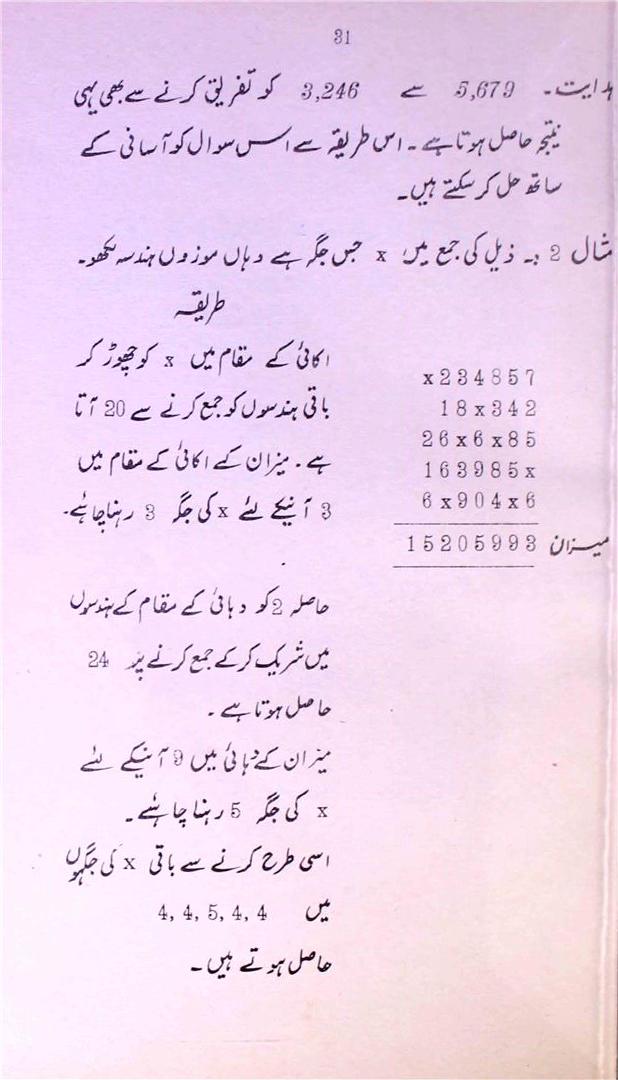 31
ہدایت۔ 5,679 سے 3,246 کو تفریق کرنے سے بھی یہی
نتیجہ حاصل ہوتا ہے۔ اس طریقہ سے اس سوال کو آسانی کے
ساتھ حل کر سکتے ہیں۔
مثال 2 :۔ ذیل کی جمع میں x جس جگہ ہے وہاں موزوں ہندسہ لکھو۔
طریقہ
اکائی کے مقام میں x کو چھوڑ کر
باقی ہندسوں کو جمع کرنے سے 20 آتا
ہے۔ میزان کے اکائی کے مقام میں
3 آنیکے لئے x کی جگہ 3 رہنا چاہئے۔
x234857
18x342
26x6x85
163985x
6x904x6
میزان 15205993
حاصلہ 2 کو دہائی کے مقام کے ہندسوں
میں شریک کرکے جمع کرنے پر 24
حاصل ہوتا ہے۔
میزان کے دہائی میں 9 آنیکے لئے
x کی جگہ 5 رہنا چاہئے۔
اسی طرح کرنے سے باقی x کی جگہوں
میں 4, 4, 5, 4, 4
حاصل ہوتے ہیں۔